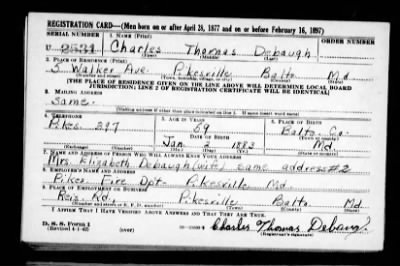 REGISTRATION CARD—(Men born on or after April 28, 1877 and on or before February 16, 1897)
SERIAL NUMBER 1. NAME (Print) ORDER NUMBER
U 2531 Charles Thomas Debaugh
(First) (Middle) (Last)
2. PLACE OF RESIDENCE (Print)
5 Walker Ave. Pikesville Balto. Md
(Number and street) (Town, township, village, or city) (County) (State)
[THE PLACE OF RESIDENCE GIVEN ON THE LINE ABOVE WILL DETERMINE LOCAL BOARD
JURISDICTION; LINE 2 OF REGISTRATION CERTIFICATE WILL BE IDENTICAL]
3. MAILING ADDRESS
Same.
[Mailing address if other than place indicated on line 2. If same insert word same]
4. TELEPHONE 5. AGE IN YEARS 6. PLACE OF BIRTH
Pikes. 297 59 Balto. Co.
DATE OF BIRTH (Town or county)
Jan. 2 1883 Md.
(Exchange) (Number) (Mo.) (Day) (Yr.) (State or country)
7. NAME AND ADDRESS OF PERSON WHO WILL ALWAYS KNOW YOUR ADDRESS
Mrs. Elizabeth Debaugh (wife) same address #2
8. EMPLOYER'S NAME AND ADDRESS
Pikes. Fire Dpt. Pikesville Md.
9. PLACE OF EMPLOYMENT OR BUSINESS
Reis. Rd., Pikesville Balto. Md.
(Number and street or R. F. D. number) (Town) (County) (State)
I AFFIRM THAT I HAVE VERIFIED ABOVE ANSWERS AND THAT THEY ARE TRUE.
D. S. S. Form 1
(Revised 4-1-42) (over) Charles Thomas Debaugh
(Registrant's signature)